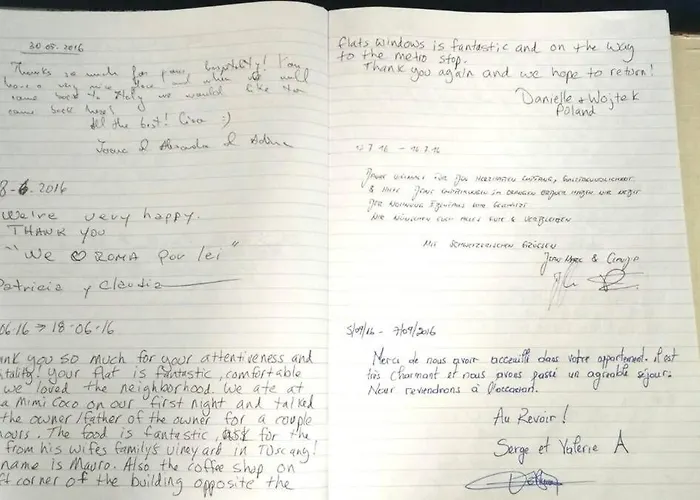 30 05. 2016
Thanks so much for your hospitality! You
have a very nice place and when we will
come back to Italy we would like to
come back here!
All the best! Ciao :)
8-6. 2016
We're very happy.
THANK YOU
"We ♡ ROMA por lei"
Patricia y Claudia
06-16 → 18-06-16
ank you so much for your attentiveness and
itality! your flat is fantastic, comfortable
we loved the neighborhood. We ate at
a Mimi Coco on our first night and talked
the owner/father of the owner for a couple
hours. The food is fantastic, ask for the
from his wifes family's vineyard in Tuscany!
name is Mauro. Also the coffee shop on
ft corner of the building opposite the
flats windows is fantastic and on the way
to the metro stop.
Thank you again and we hope to return!
Danielle + Wojtek
Poland
7.16 - 16.7.16
für die herzhaften
& Ihre
der Wohnung
Wir wünschen Euch alles Gute &
Mit Schweizerischen Grüssen
Jean Marc &
5/09/16 - 7/09/2016
Merci de nous avoir acceuilli dans votre appartement. il est
très charmant et nous avons passé un agréable séjour.
Nous reviendrons à l'occasion.
Au Revoir!
Serge et Valerie A